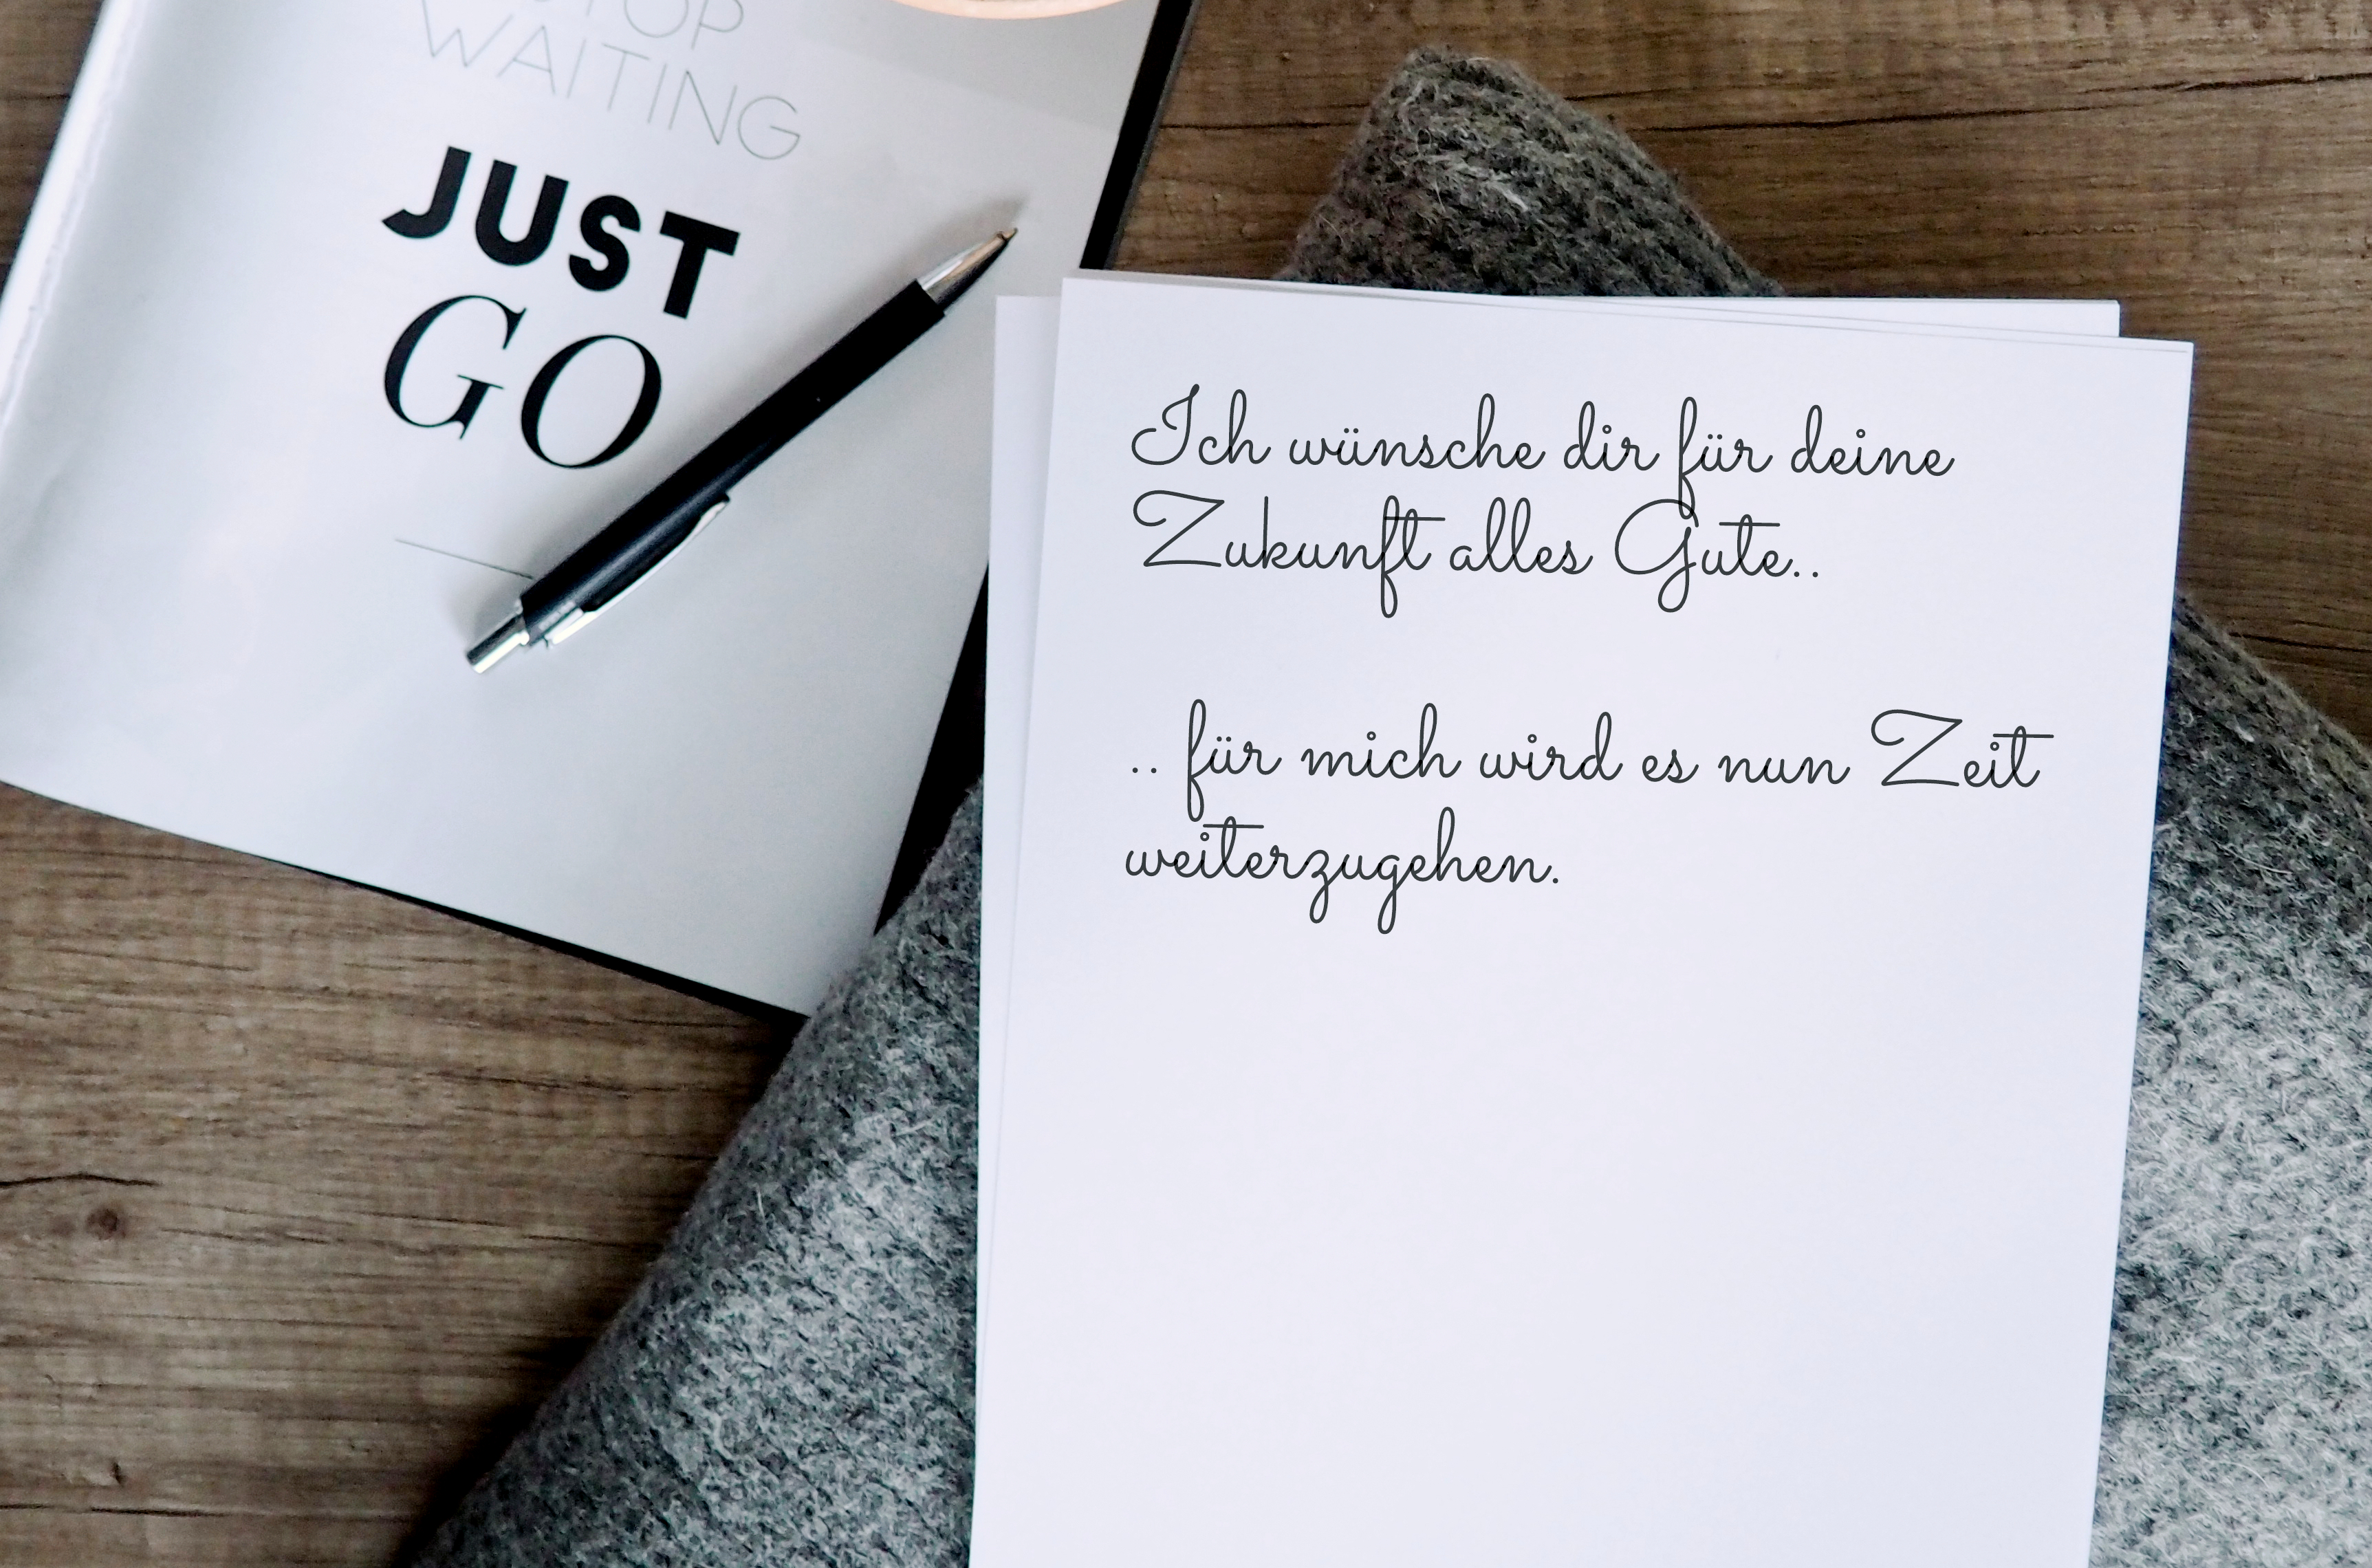 WAITING
JUST
GO
Ich wünsche dir für deine
Zukunft alles Gute..
.. für mich wird es nun Zeit
weiterzugehen.